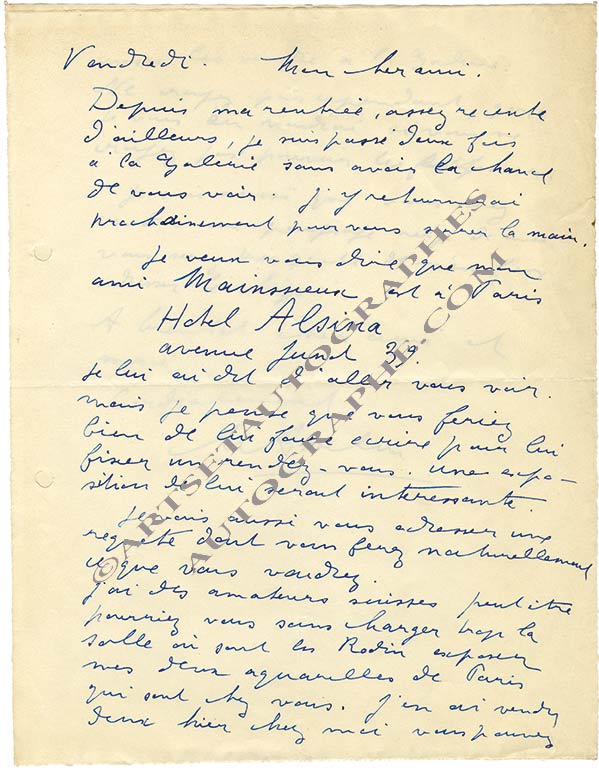 Vendredi. Mon cher ami.
Depuis ma rentrée, assez recente
d'ailleurs, je suis passé deux fois
à la Galerie sans avoir la chance
de vous voir. J'y retournerai
prochainement pour vous serrer la main.
Je veux vous dire que mon
ami Mainssieux est à Paris
Hotel Alsina
avenue Junot 39.
Je lui ai dit d'aller vous voir.
mais je pense que vous feriez
bien de lui faire ecrire pour lui
fixer un rendez-vous. Une expo-
sition de lui serait interessante.
Je vais aussi vous adresser une
requête dont vous ferez naturellement
ce que vous voudrez.
J'ai des amateurs suisses peut être
pourriez vous sans charger trop la
salle où sont les Rodin exposer
mes deux aquarelles de Paris
qui sont chez vous. J'en ai vendu
deux hier chez moi vous pouvez
©ARTSETAUTOGRAPHES
AUTOGRAPHE.COM